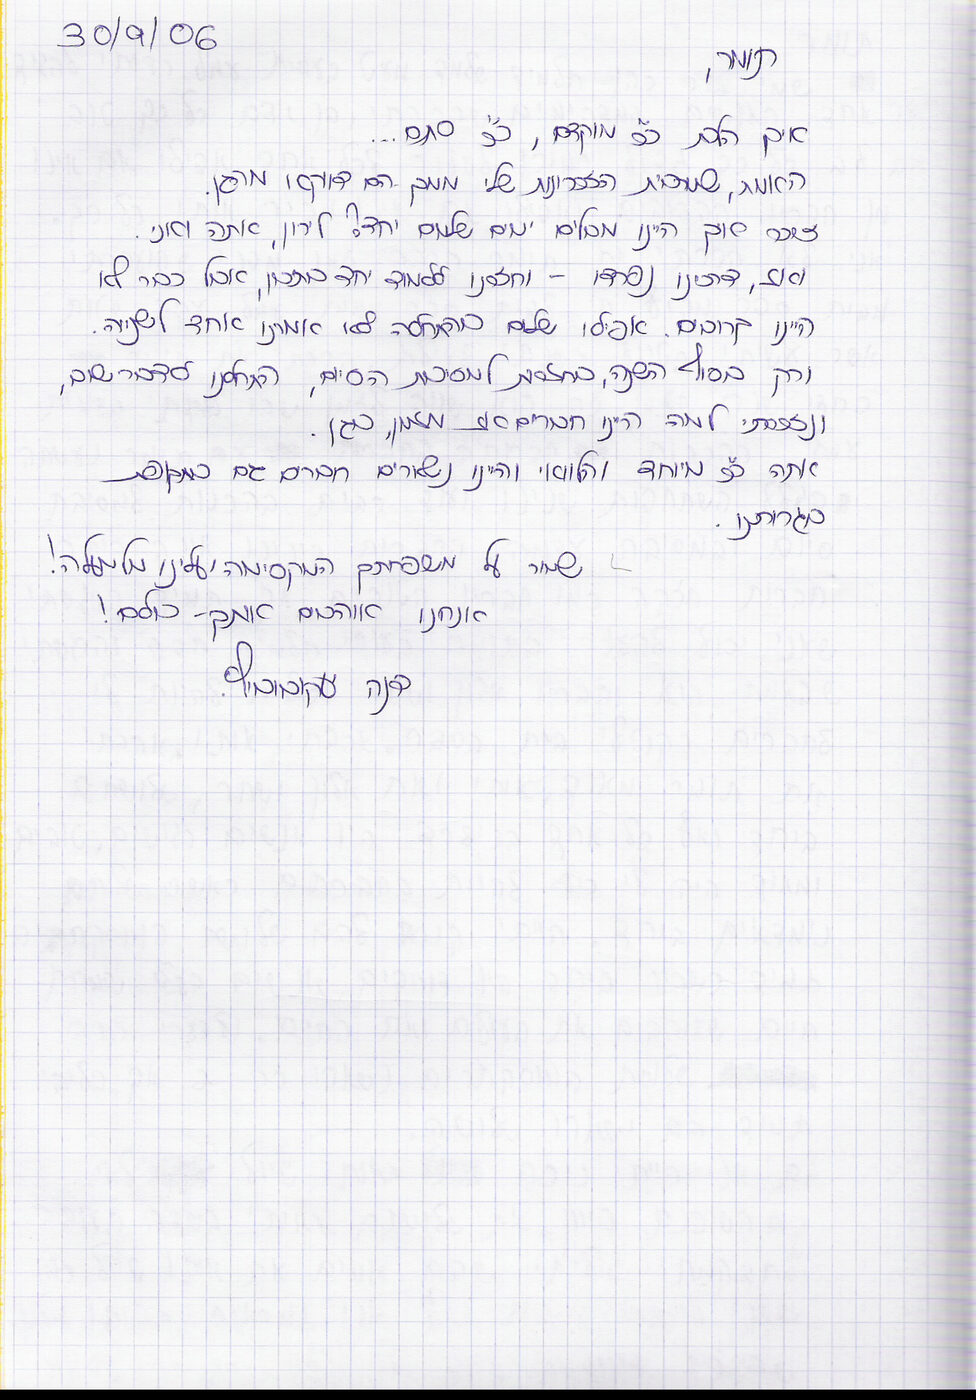 30/9/06
תומר,
איך הלכת כ"כ מוקדם, כ"כ סתם...
האמת, שמרבית הזכרונות שלי ממך הם דווקא מהגן.
זוכר איך היינו מבלים ימים שלמים יחד? לירון, אתה ואני.
ואז, דרכינו נפרדו - וחזרנו ללמוד יחד בתיכון, אבל כבר לא
היינו קרובים. אפילו שלום בהתחלה לא אמרנו אחד לשנייה.
ורק בסוף השנה, בחזרות למסיבת הסיום, התחלנו לדבר שוב,
ונזכרתי למה היינו חברים אז מזמן, בגן.
אתה כ"כ מיוחד והלוואי והיינו נשארים חברים גם בתקופת
בגרותנו.
שמור על משפחתך המקסימה ועלינו מלמעלה!
אנחנו אוהבים אותך - כולם!
דנה יעקובוביץ'.